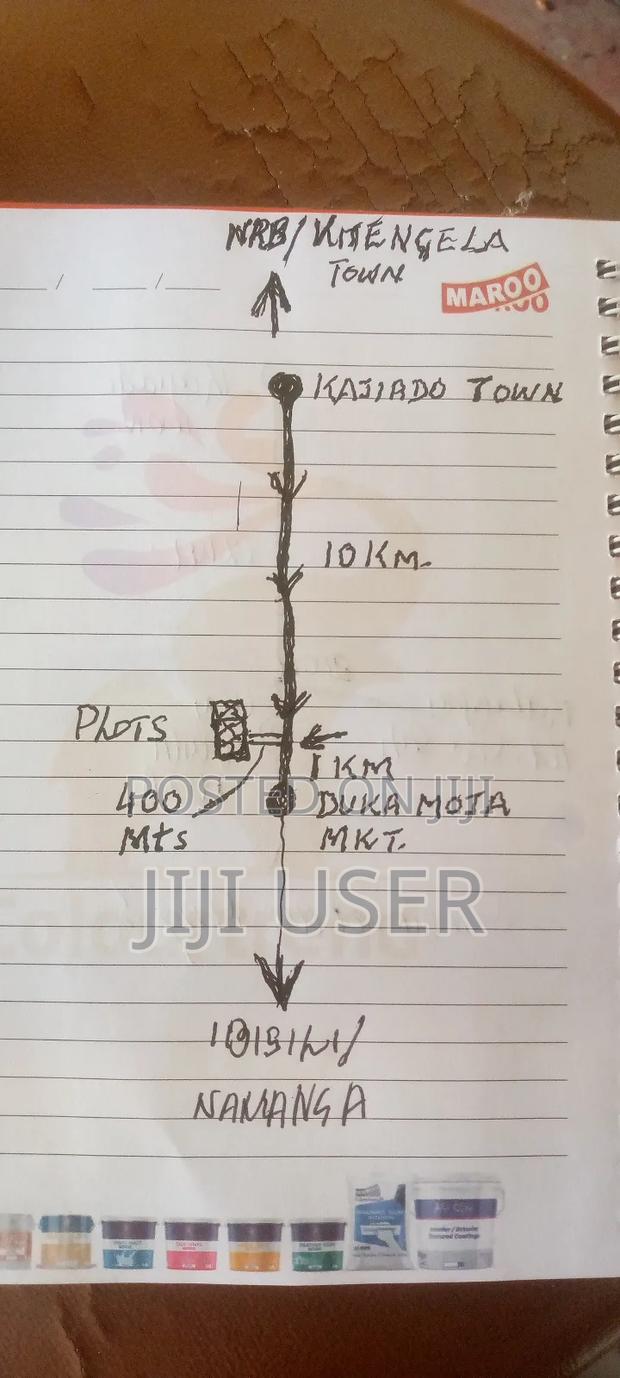 NRB/KITENGELA
TOWN
MAROO
KAJIADO TOWN
10 KM.
PLOTS
1 KM
400
Mts
DUKA MOJA
MKT.
POSTED ON JIJI
JIJI USER
NAMANGA